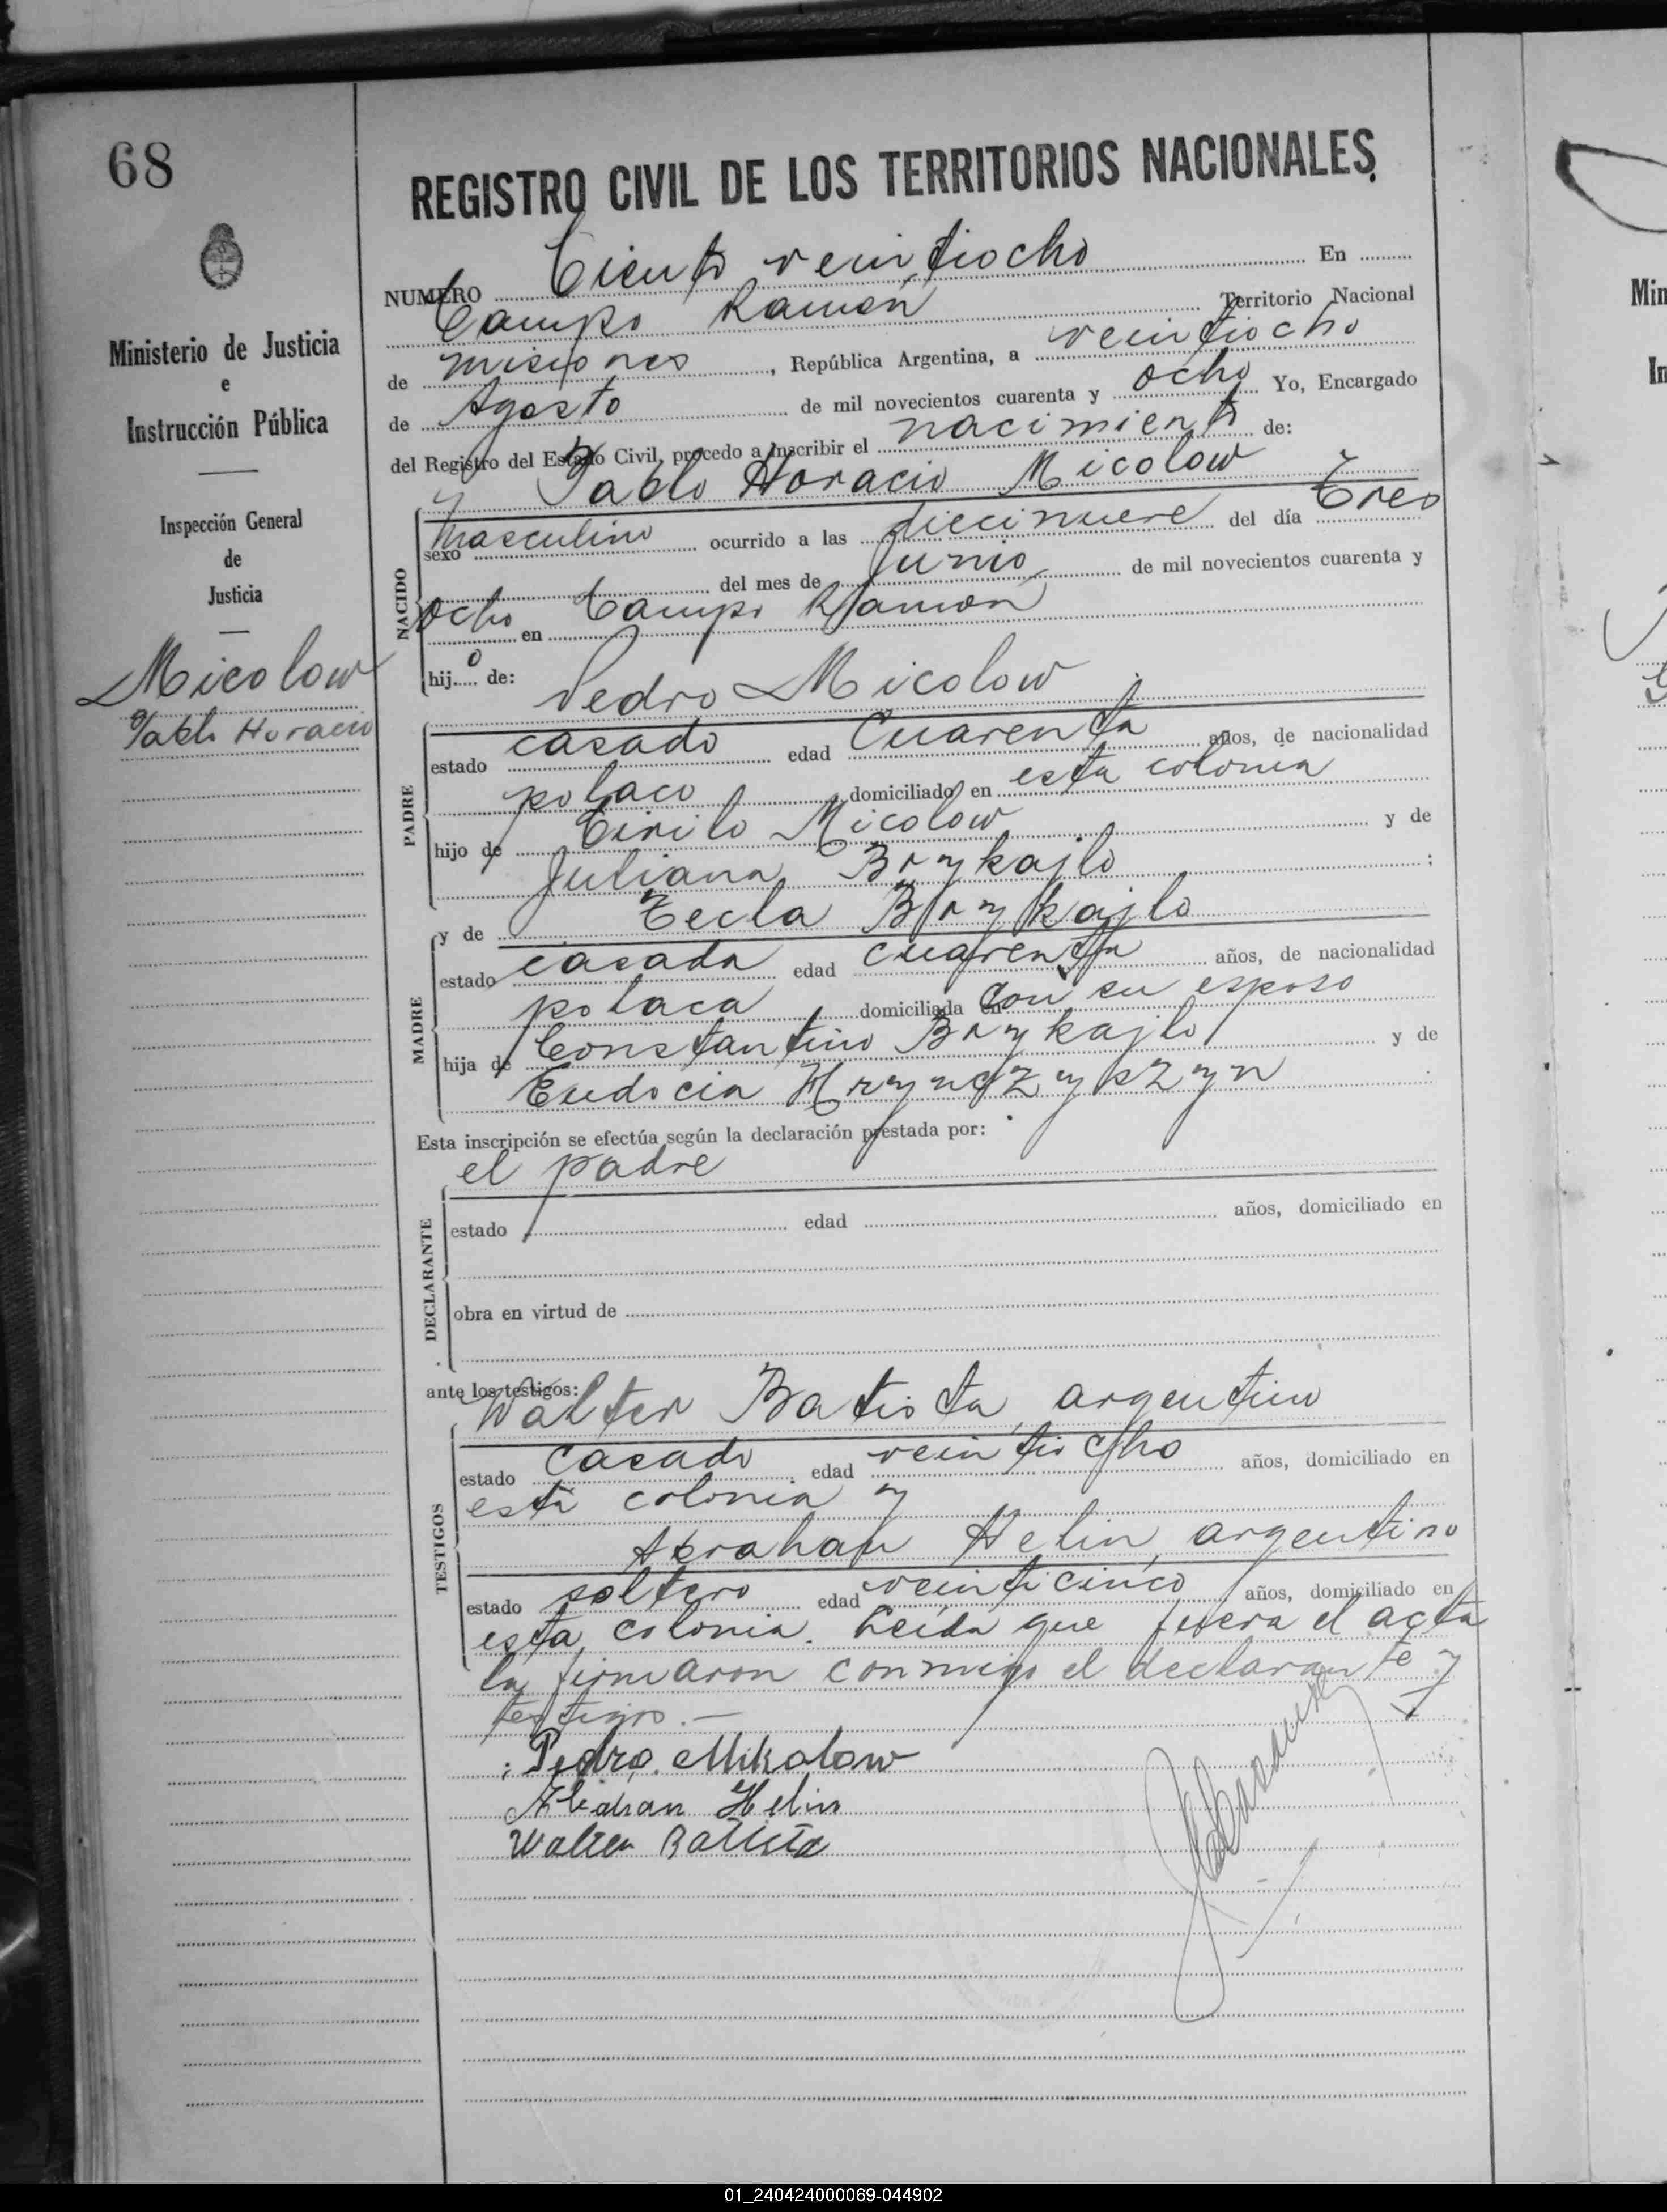 68
REGISTRO CIVIL DE LOS TERRITORIOS NACIONALES
Ministerio de Justicia
e
Instrucción Pública
Inspección General
de
Justicia
Micolow
Pablo Horacio
NUMERO Ciento veintiocho En
Campo Ramón Territorio Nacional
de misiones, República Argentina, a veintiocho
de Agosto de mil novecientos cuarenta y ocho Yo, Encargado
del Registro del Estado Civil, procedo a inscribir el nacimiento de:
Pablo Horacio Micolow
NACIDO
sexo masculino ocurrido a las diecinueve del día tres
del mes de Junio de mil novecientos cuarenta y
ocho en Campo Ramón
hijo de: Pedro Micolow
PADRE
estado casado edad Cuarenta años, de nacionalidad
polaco domiciliado en esta colonia
hijo de Cirilo Micolow y de
Juliana Brykajlo;
y de Tecla Brykajlo
MADRE
estado casada edad cuarenta años, de nacionalidad
polaca domiciliada en con su esposo
hija de Constantino Brykajlo y de
Eudocia
Esta inscripción se efectúa según la declaración prestada por:
el padre
DECLARANTE
estado edad años, domiciliado en
obra en virtud de
ante los testigos:
Walter Batista, argentino
TESTIGOS
estado casado edad veintiocho años, domiciliado en
esta colonia y
Abrahan Helin, argentino
estado soltero edad veinticinco años, domiciliado en
esta colonia. Leída que fuera el acta
la firmaron conmigo el declarante y
testigos.—
Pedro Mikolow
Abrahan Helin
Walter Batista
Min
In
01_240424000069-044902